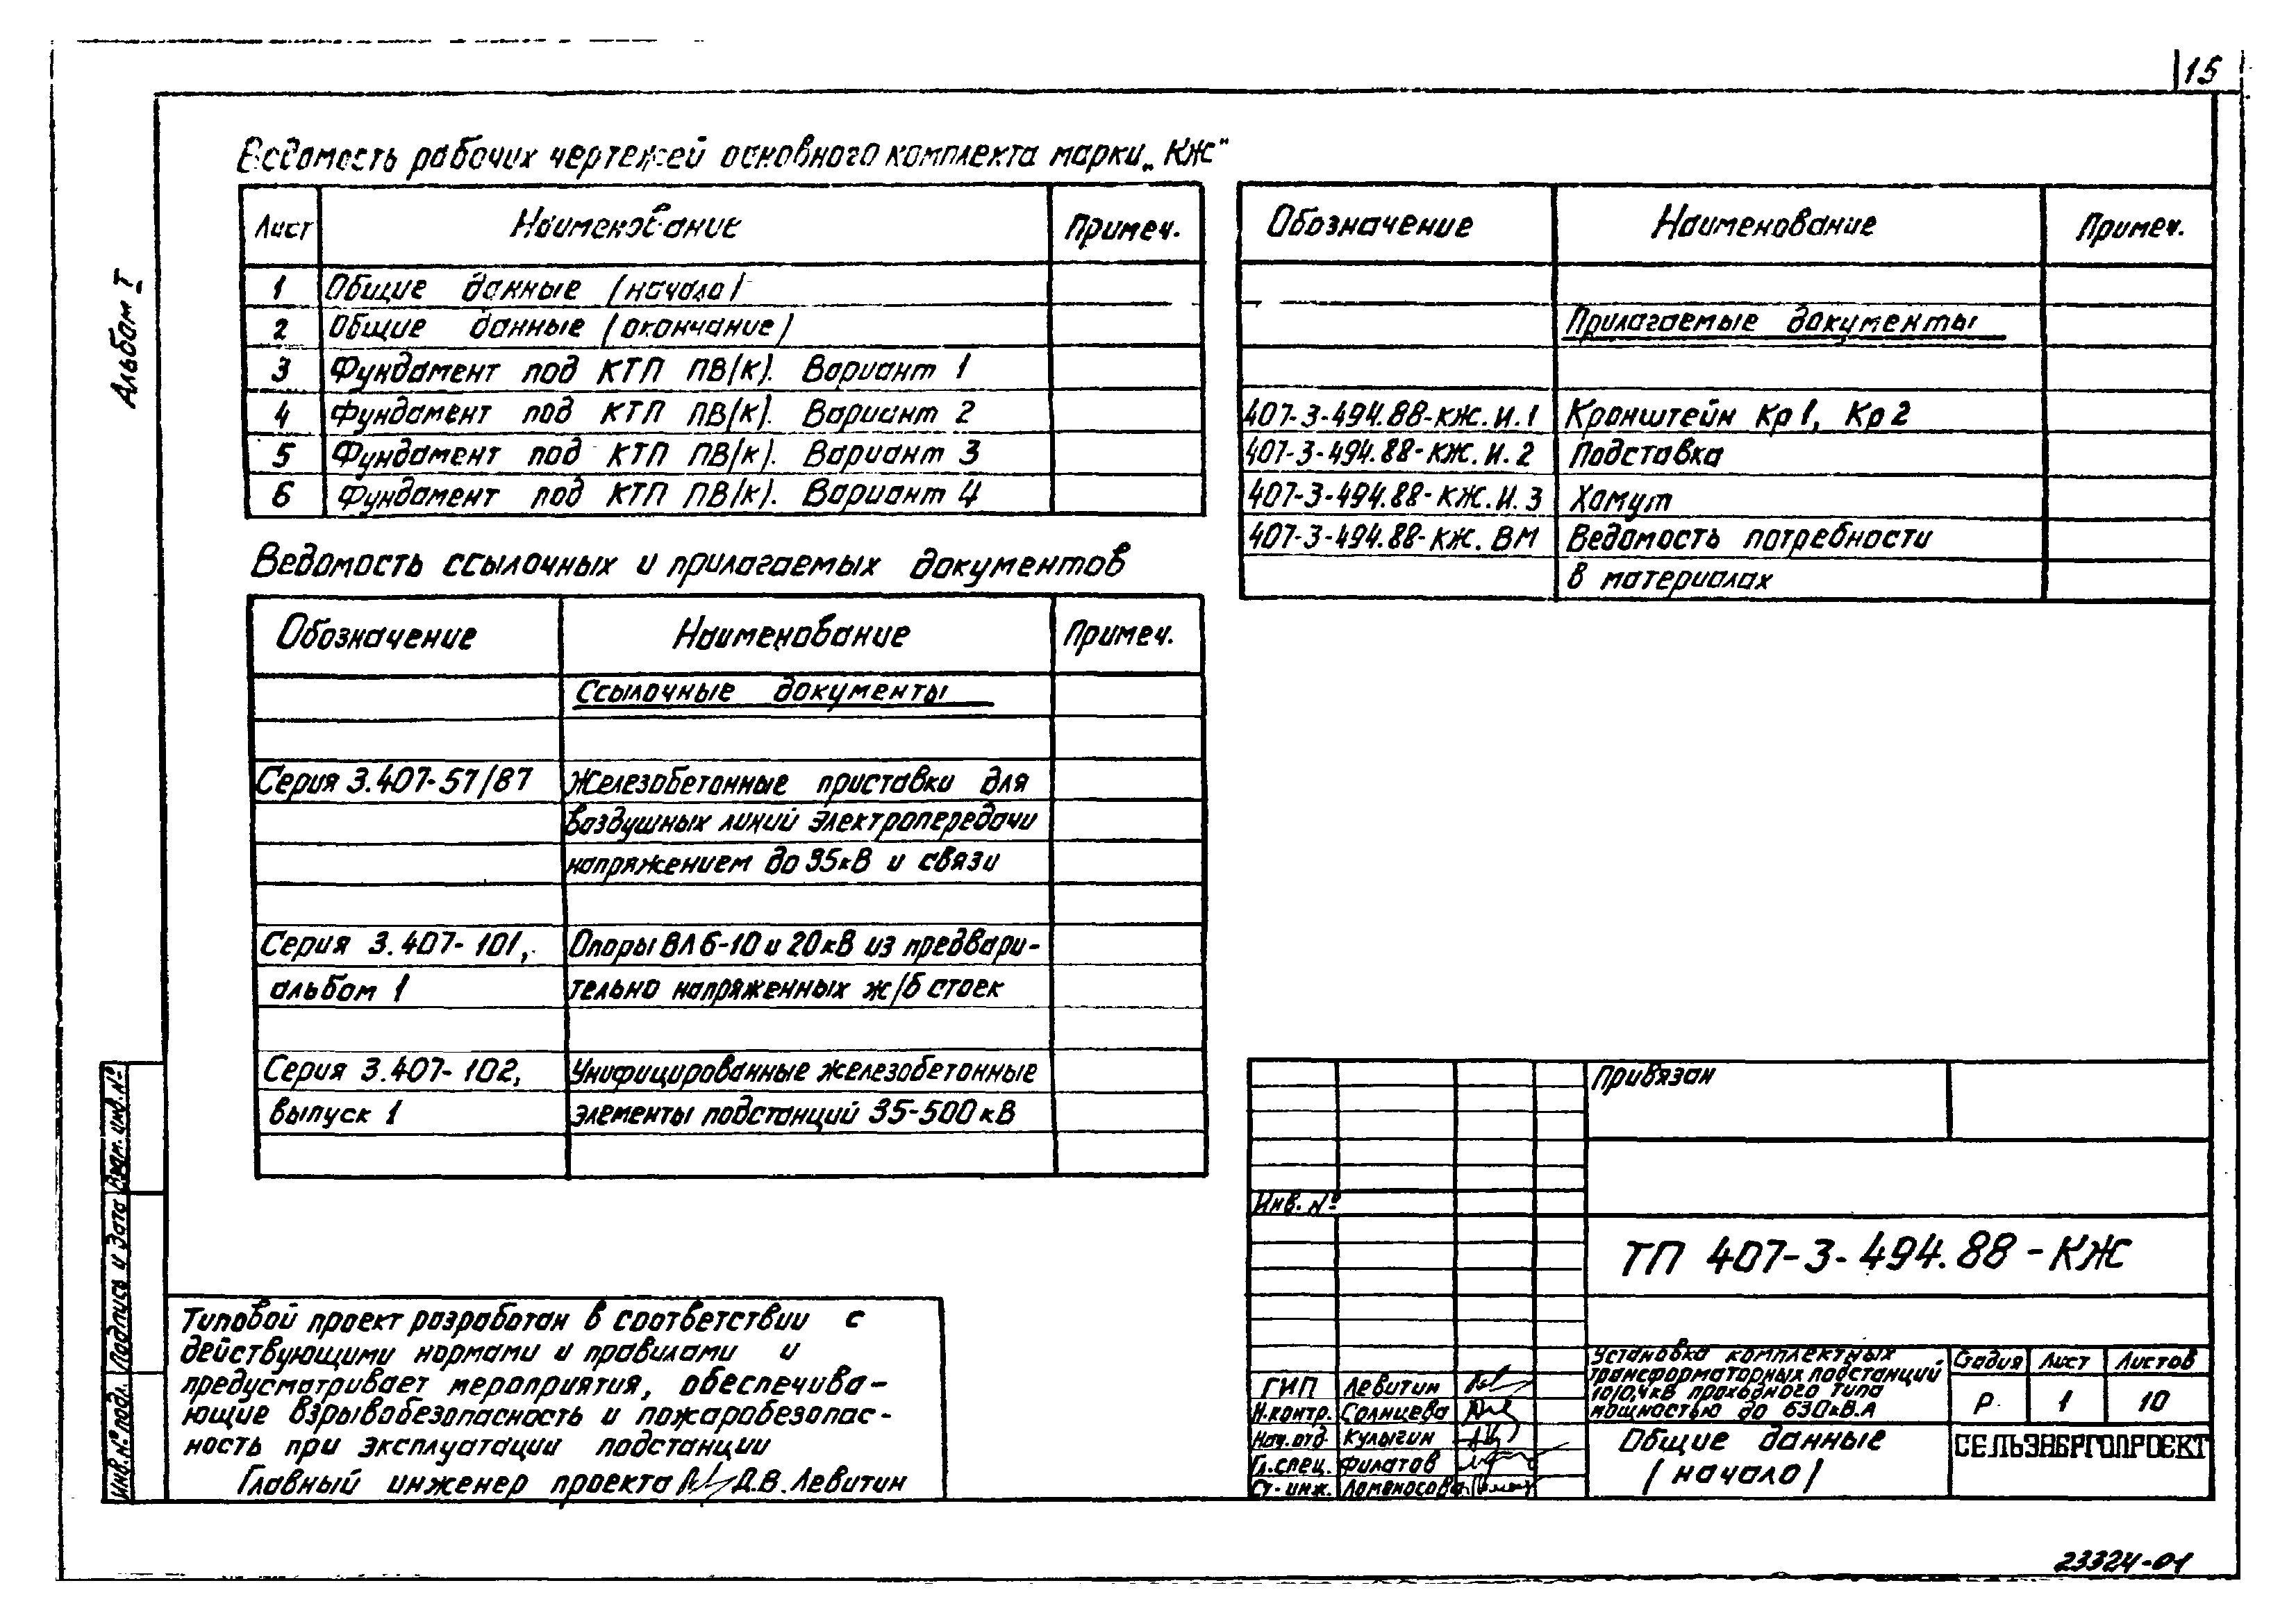 15
Альбом I
Ведомость рабочих чертежей основного комплекта марки „КЖ"
Лист Наименование Примеч.
1 Общие данные (начало)
2 Общие данные (окончание)
3 Фундамент под КТП ПВ(К). Вариант 1
4 Фундамент под КТП ПВ(К). Вариант 2
5 Фундамент под КТП ПВ(К). Вариант 3
6 Фундамент под КТП ПВ(К). Вариант 4
Ведомость ссылочных и прилагаемых документов
Обозначение Наименование Примеч.
Ссылочные документы
Серия 3.407-57/87 Железобетонные приставки для
воздушных линий электропередачи
напряжением до 35кВ и связи
Серия 3.407-101, Опоры ВЛ 6-10 и 20кВ из предвари-
альбом 1 тельно напряженных ж/б стоек
Серия 3.407-102, Унифицированные железобетонные
выпуск 1 элементы подстанций 35-500кВ
Обозначение Наименование Примеч.
Прилагаемые документы
407-3-494.88-КЖ.И.1 Кронштейн Кр1, Кр2
407-3-494.88-КЖ.И.2 Подставка
407-3-494.88-КЖ.И.3 Хомут
407-3-494.88-КЖ.ВМ Ведомость потребности
в материалах
Типовой проект разработан в соответствии с
действующими нормами и правилами и
предусматривает мероприятия, обеспечива-
ющие взрывобезопасность и пожаробезопас-
ность при эксплуатации подстанции
Главный инженер проекта Д.В. Левитин
Инв.№ подл. Подпись и дата Взам. инв.№
Привязан
Инв. №
ТП 407-3-494.88-КЖ
Установка комплектных
трансформаторных подстанций
10/0,4кВ проходного типа
мощностью до 630кВ.А
Стадия Лист Листов
Р 1 10
ГИП Левитин
Н.контр. Солнцева
Нач.отд Кулыгин
Гл.спец. Филатов
Ст.инж. Ломоносова
Общие данные
(начало)
СЕЛЬЭНЕРГОПРОЕКТ
23324-01